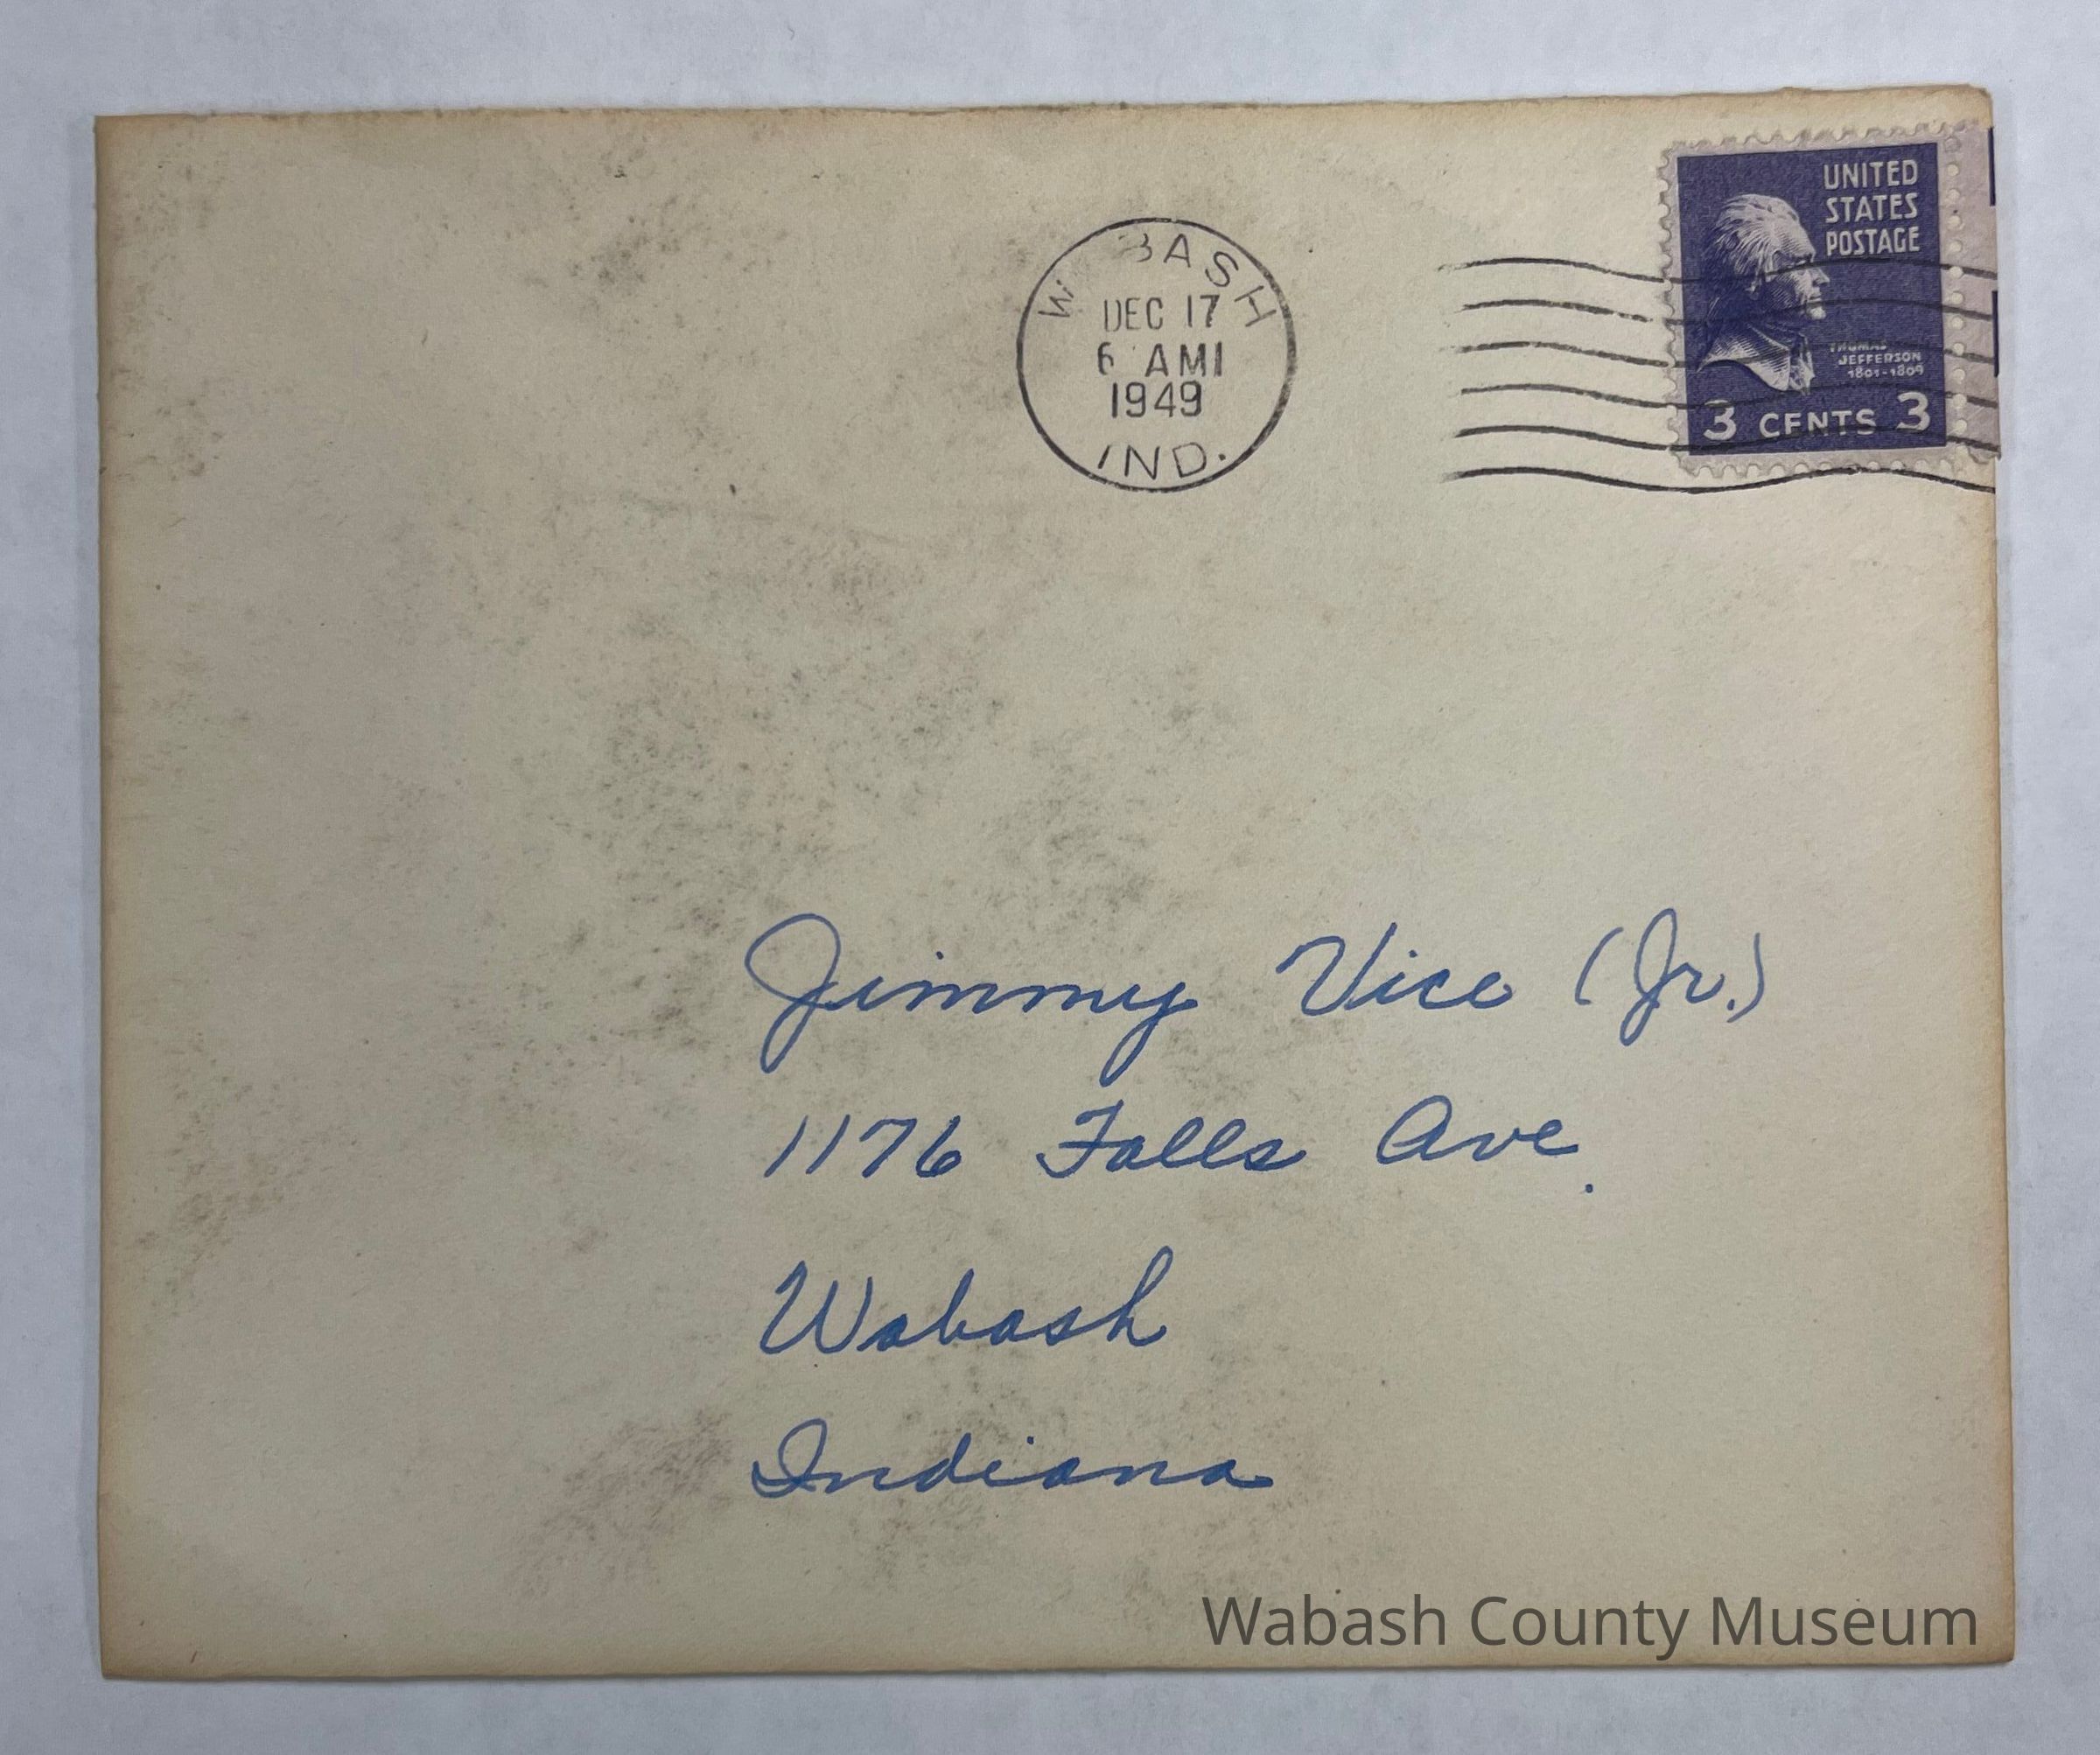 UNITED
STATES
POSTAGE
THOMAS
JEFFERSON
1801-1809
3 CENTS 3
WABASH
DEC 17
6 AM
1949
IND.
Jimmy Vice (Jr.)
1176 Falls Ave.
Wabash
Indiana
Wabash County Museum